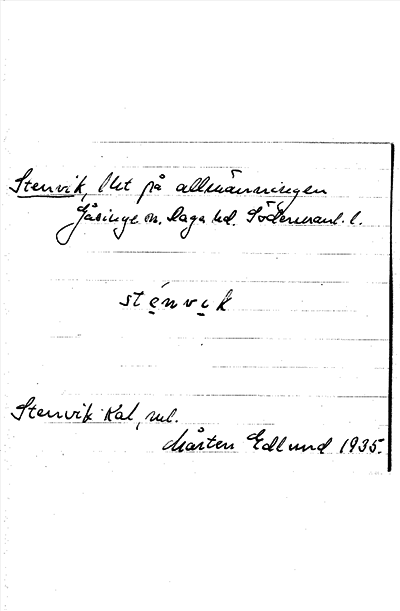 Stenvik, lht på allmänningen
Gåsinge sn. Daga hd. Södermanl. l.
sténvik
Stenvik Kal, ml.
Mårten Edlund 1935.